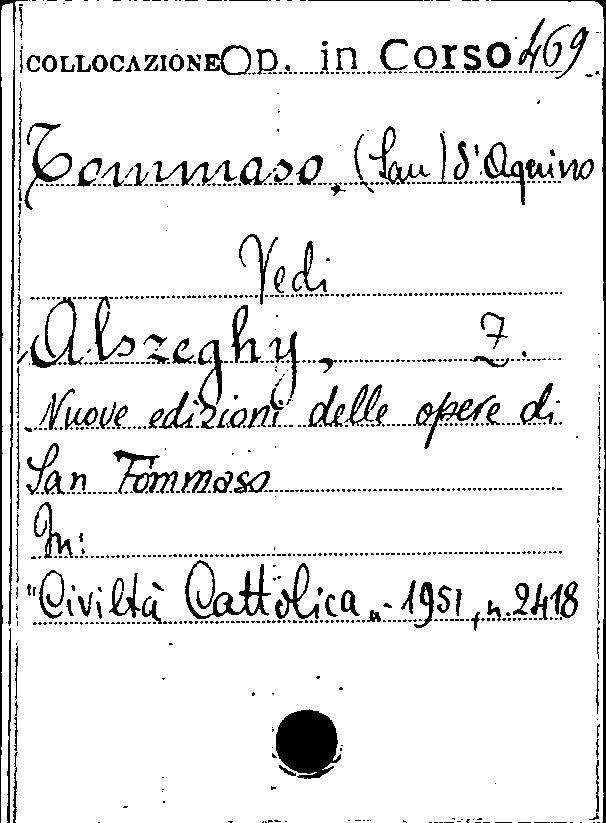 COLLOCAZIONE Op. in Corso 469
Tommaso, (San) d'Aquino
Vedi
Alszeghy, Z.
Nuove edizioni delle opere di
San Tommaso
In:
"Civiltà Cattolica„ - 1951, n. 2418